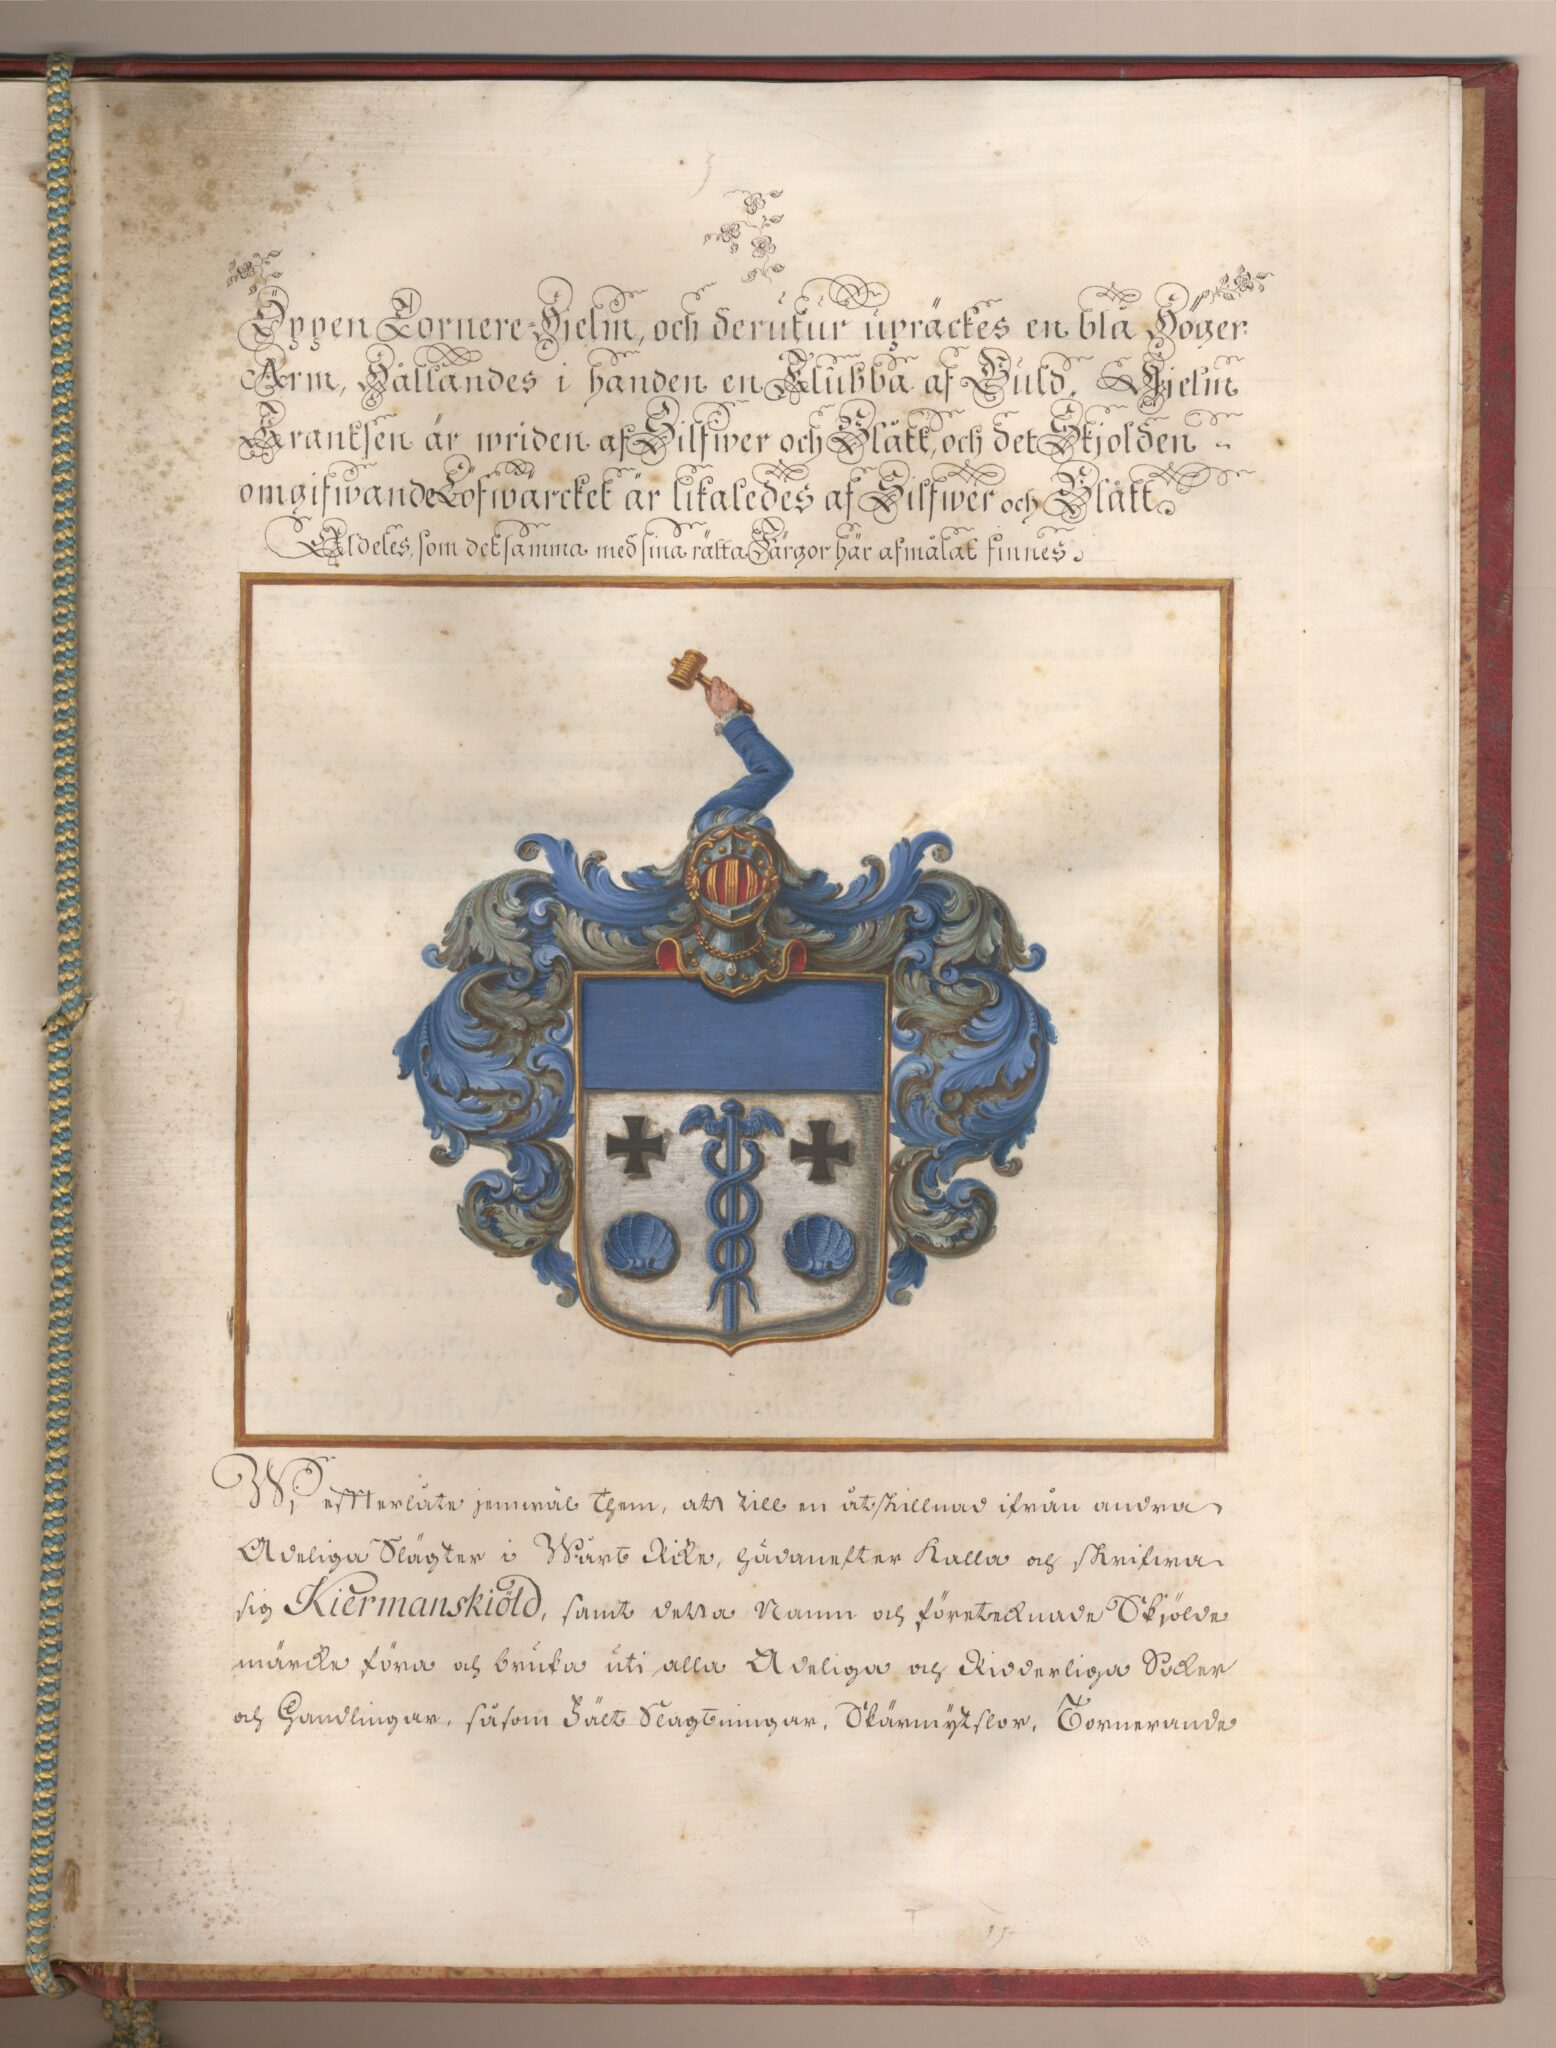 Öppen Tornere-Hjelm, och derutur upräckes en blå Höger
Arm, Hållandes i handen en Klubba af Guld. Hjelm
Krantsen är wriden af Silfwer och Blått, och det Skjolden
omgifwande Löfwärcket är likaledes af Silfwer och Blått.
Aldeles, som det samma med sina rätta Färgor här afmålat finnes.
Wi effterlåte jemwäl them, att till en åtskillnad ifrån andra
Adeliga Slägter i Wårt Rike, hädanefter Kalla och skrifwa
sig Kiermanskiöld, samt detta Namn och företeknade Skjölde
märcke föra och bruka uti alla Adeliga och Ridderliga Saker
och Handlingar, såsom Fält Slagtningar, Skärmytslor, Tornerande